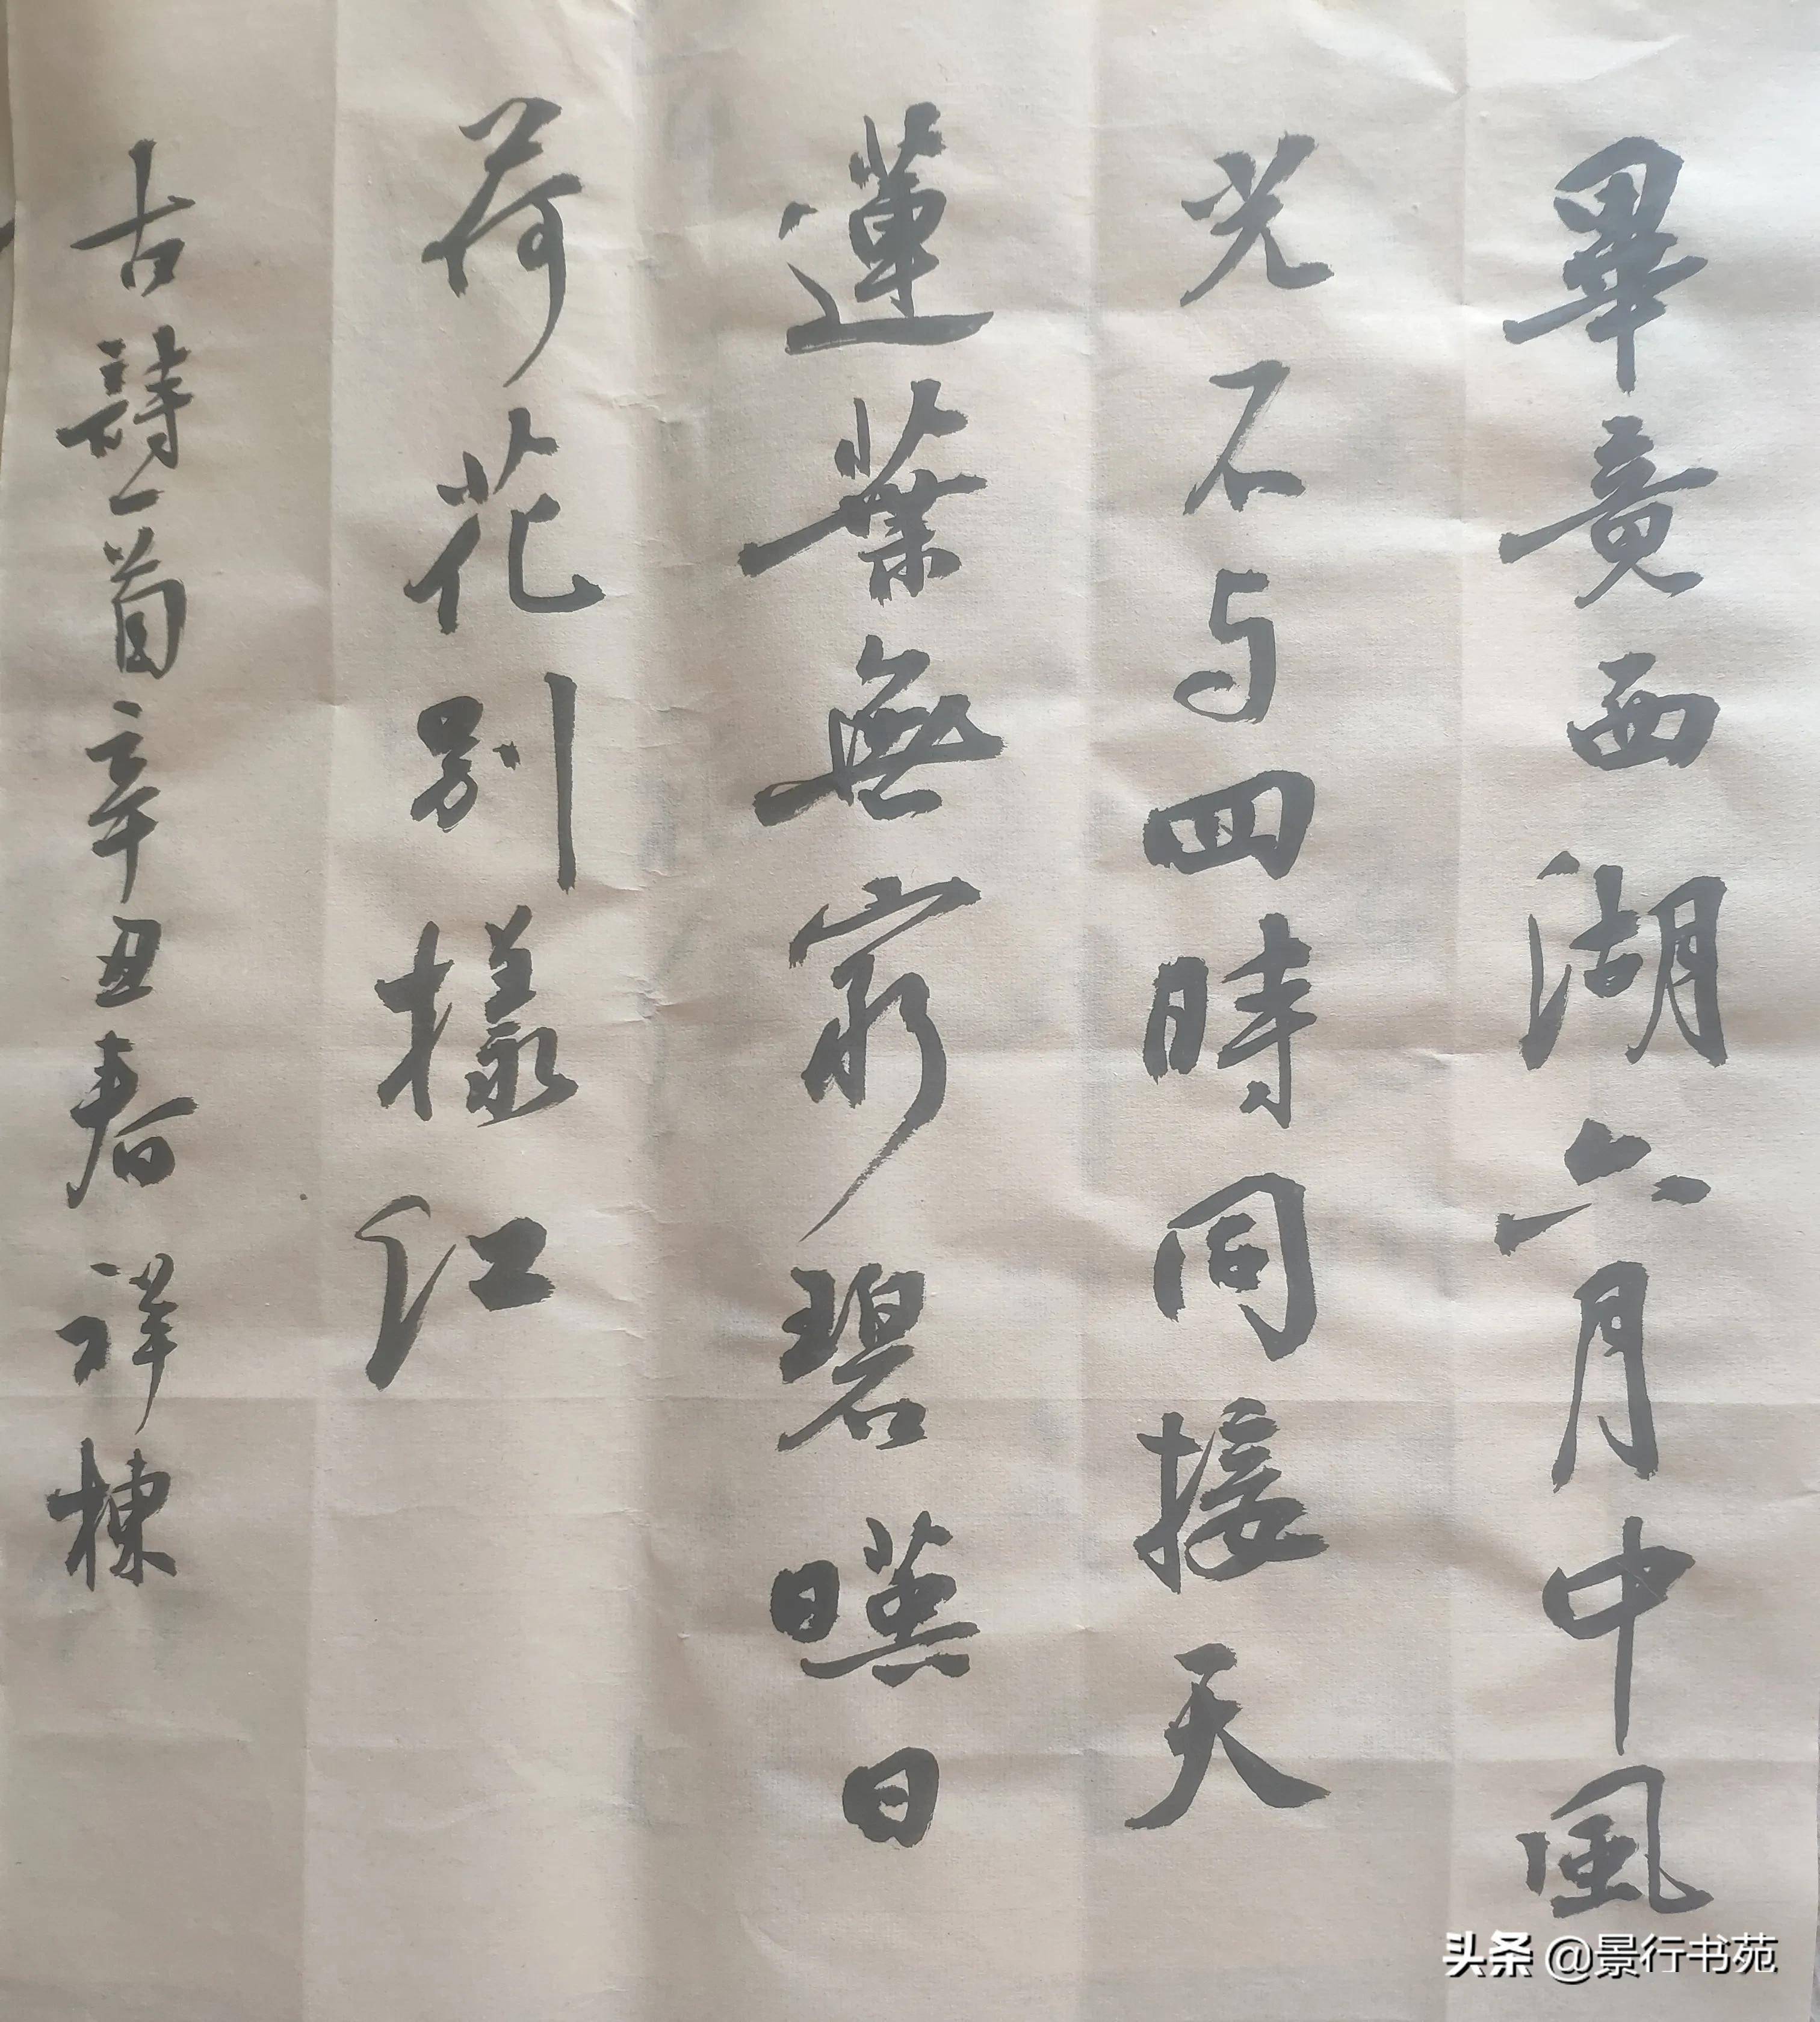 畢竟西湖六月中風
光不与四時同接天
蓮葉無窮碧暎日
荷花別樣红
古詩一首辛丑春祥棟
头条 @景行书苑